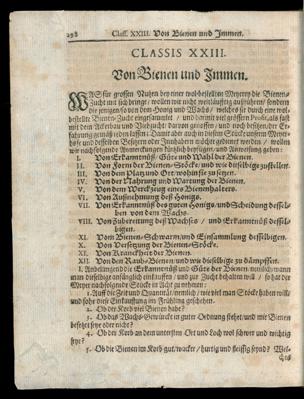 298 Class. XXIII. Von Bienen und Immen.
CLASSIS XXIII.
Von Bienen und Immen.
WAS für grossen Nutzen bey einer wohlbestellten Meyerey die Bienen-
Zucht mit sich bringe / wollen wir nicht weitläufftig ausführen / sondern
die jenigen so von dem Honig und Wachs / welches sie durch eine wol-
bestellte Bienen-Zucht eingesammlet / und damit viel grössern Profit, als fast
mit dem Ackerbau und Viehzucht davon gezogen / und noch besitzen / der Er-
fahrung gemäß reden lassen: Damit aber auch in diesem Stück unsere Meyer-
wir nachfolgende Anmerckungen fünfflich beyfügen / und Anwendung geben:
I. Von Erkanntniß / Güte und Wahl der Bienen.
II. Von Form der Bienen-Stöcke und wie dieselbige zustellen.
III. Von dem Platz und Ort / wohin sie zu setzen.
IV. Von der Nahrung und Wartung der Bienen.
V. Von dem Werckzeug eines Bienenhalters.
VI. Von Aufnehmung deß Honigs.
VII. Von Erkanntnuß des guten Honigs und Scheidung dessel-
ben von dem Wachs.
VIII. Von Zubereitung deß Wachses / und Erkanntnuß dessel-
bigen.
IX. Von Bienen-Schwarm und Einsammlung desselbigen.
X. Von Versetzung der Bienen-Stöcke.
XI. Von Kranckheit der Bienen.
XII. Von den Raub-Bienen und wie dieselbige zu dämpffen.
I. Anbelangend die Erkanntnuß und Güte der Bienen, wann man
dieselbige anfänglich einkauffen / und zur Zucht behalten will / so hat der
Meyer nachfolgende Stücke in Acht zu nehmen:
1. Auff die Zeit und Quantität, nemlich / wie viel man Stöcke haben will /
und soll diese Einkauffung im Frühling geschehen.
2. Ob der Korb viel Bienen habe?
3. Ob das Wachs-Gewürcke in guter Ordnung stehet / und mit Bienen
besetzt seye oder nicht?
4. Ob der Korb an dem untersten Ort und Loch wol schwer und wichtig
seye?
5. Ob die Bienen im Korb gut / wacker / hurtig und fleissig seynd? Wel-
ches